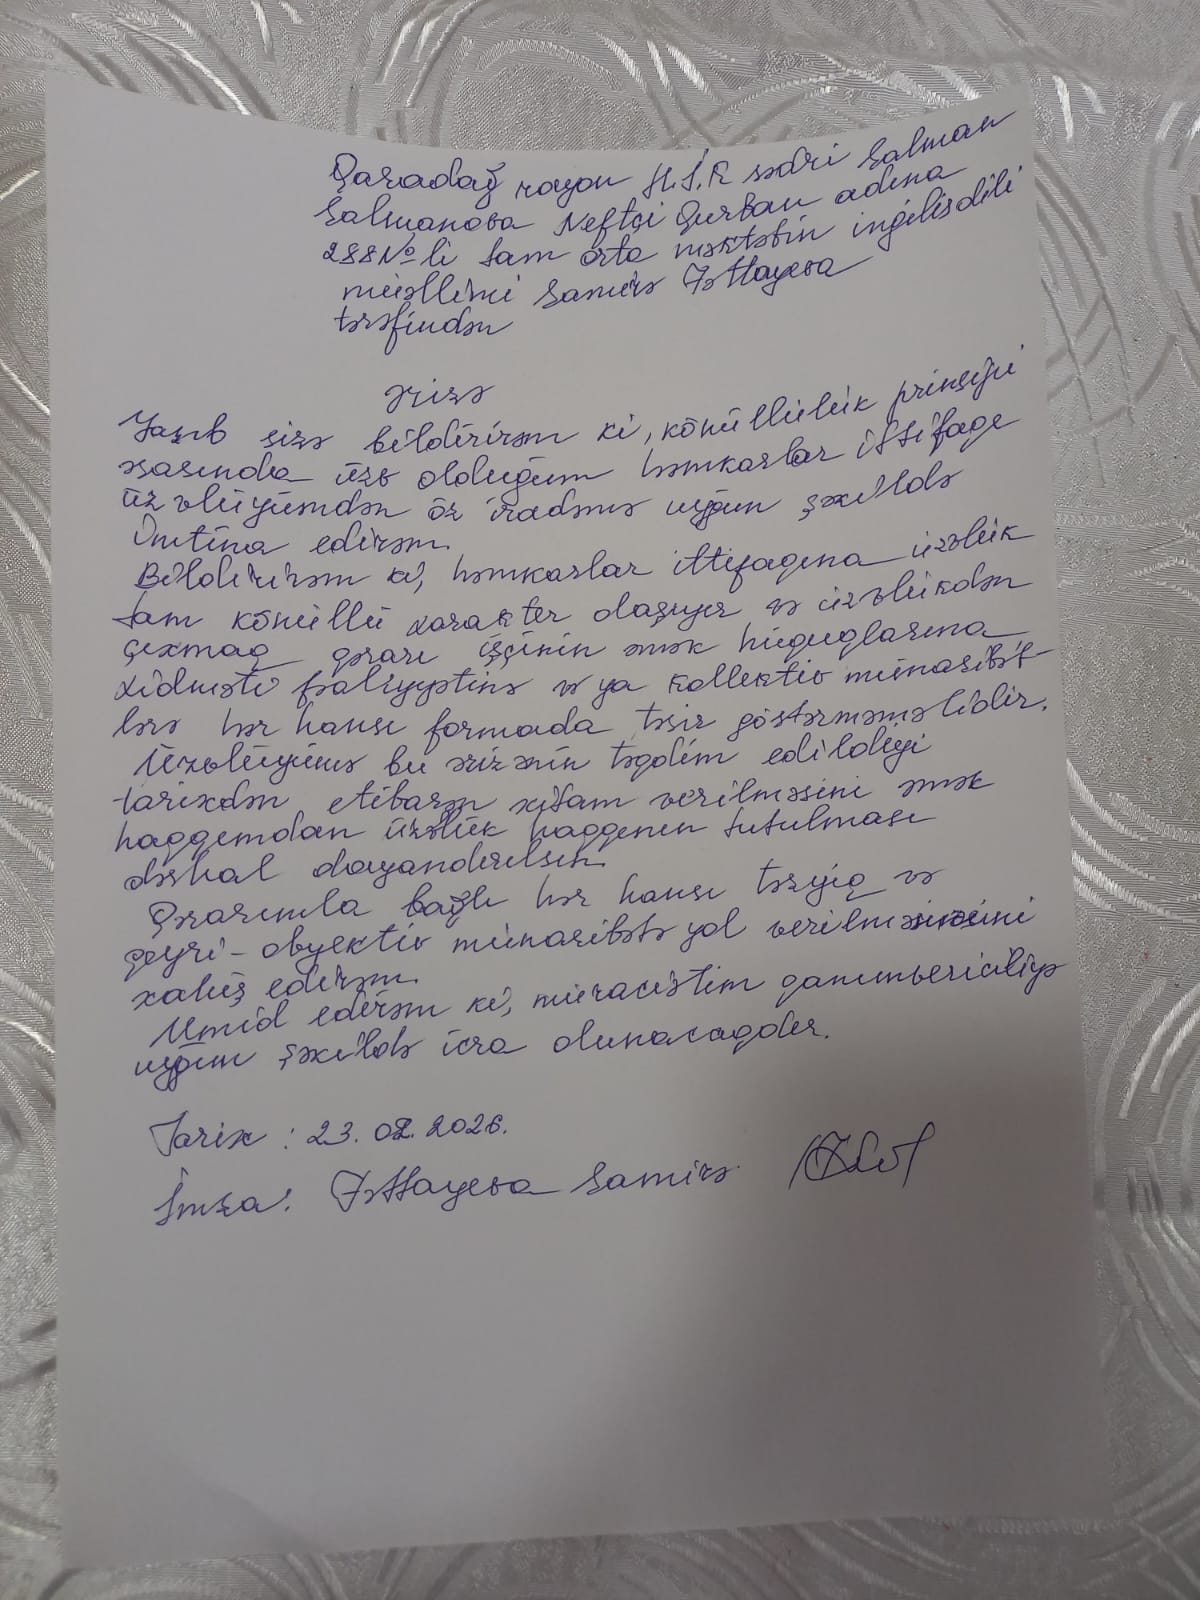 Qaradağ rayon H.İ.R sədri Salman
Salmanova Neftçi Qurban adına
288№li tam orta məktəbin ingilisdili
müəllimi Samirə Fəttayeva
tərəfindən
ərizə
Yazıb sizə bildirirəm ki, könüllülük prinsipi
əsasında üzv olduğum həmkarlar ittifaqı
üzvlüyümdən öz iradəmə uyğun şəkildə
imtina edirəm.
Bildirirəm ki, həmkarlar ittifaqına üzvlük
tam könüllü xarakter daşıyır və üzvlükdən
çıxmaq qərarı işçinin əmək hüquqlarına
xidməti fəaliyyətinə və ya kollektiv münasibət-
lərə hər hansı formada təsir göstərməməlidir.
Üzvlüyümə bu ərizənin təqdim edildiyi
tarixdən etibarən xitam verilməsini əmək
haqqımdan üzvlük haqqının tutulması
dərhal dayandırılsın.
Qərarımla bağlı hər hansı təzyiq və
qeyri-obyektiv münasibətə yol verilməməsini
xahiş edirəm.
Ümid edirəm ki, müraciətim qanunvericiliyə
uyğun şəkildə icra olunacaqdır.
Tarix: 23.02.2026.
İmza: Fəttayeva Samirə